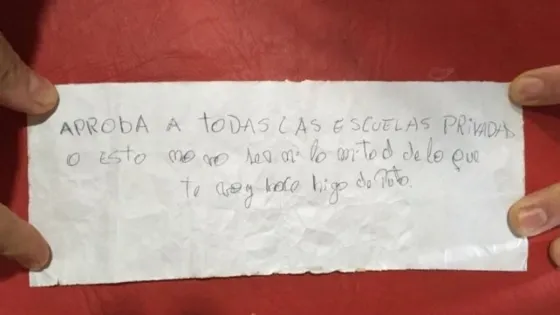 APROBA A TODAS LAS ESCUELAS PRIVADAS
O ESTO no va ser ni la mitad de lo que
te voy hace hijo de Puto.